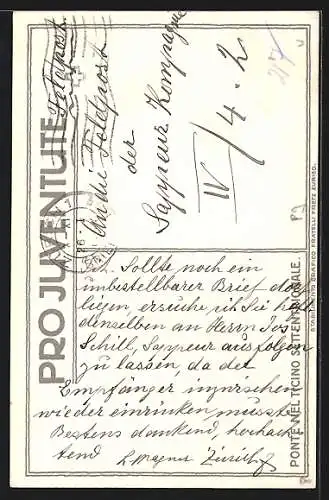 Feldpost
An die Feldpost
der
Sappeur Kompagnie
IV/4.2
27
PRO JUVENTUTE
Sollte noch ein
unbestellbarer Brief dort
liegen, ersuche ich Sie höfl.
denselben an Herrn Jos
Schill, Sappeur ausfolgen
zu lassen, da der
Empfänger inzwischen
wieder einrücken musste
Bestens dankend, hochach
tend
Wagner Zürich 7
PONTE NEL TICINO SETTENTRIONALE.
STABILIMENTO GRAFICO FRATELLI FRETZ ZURIGO.